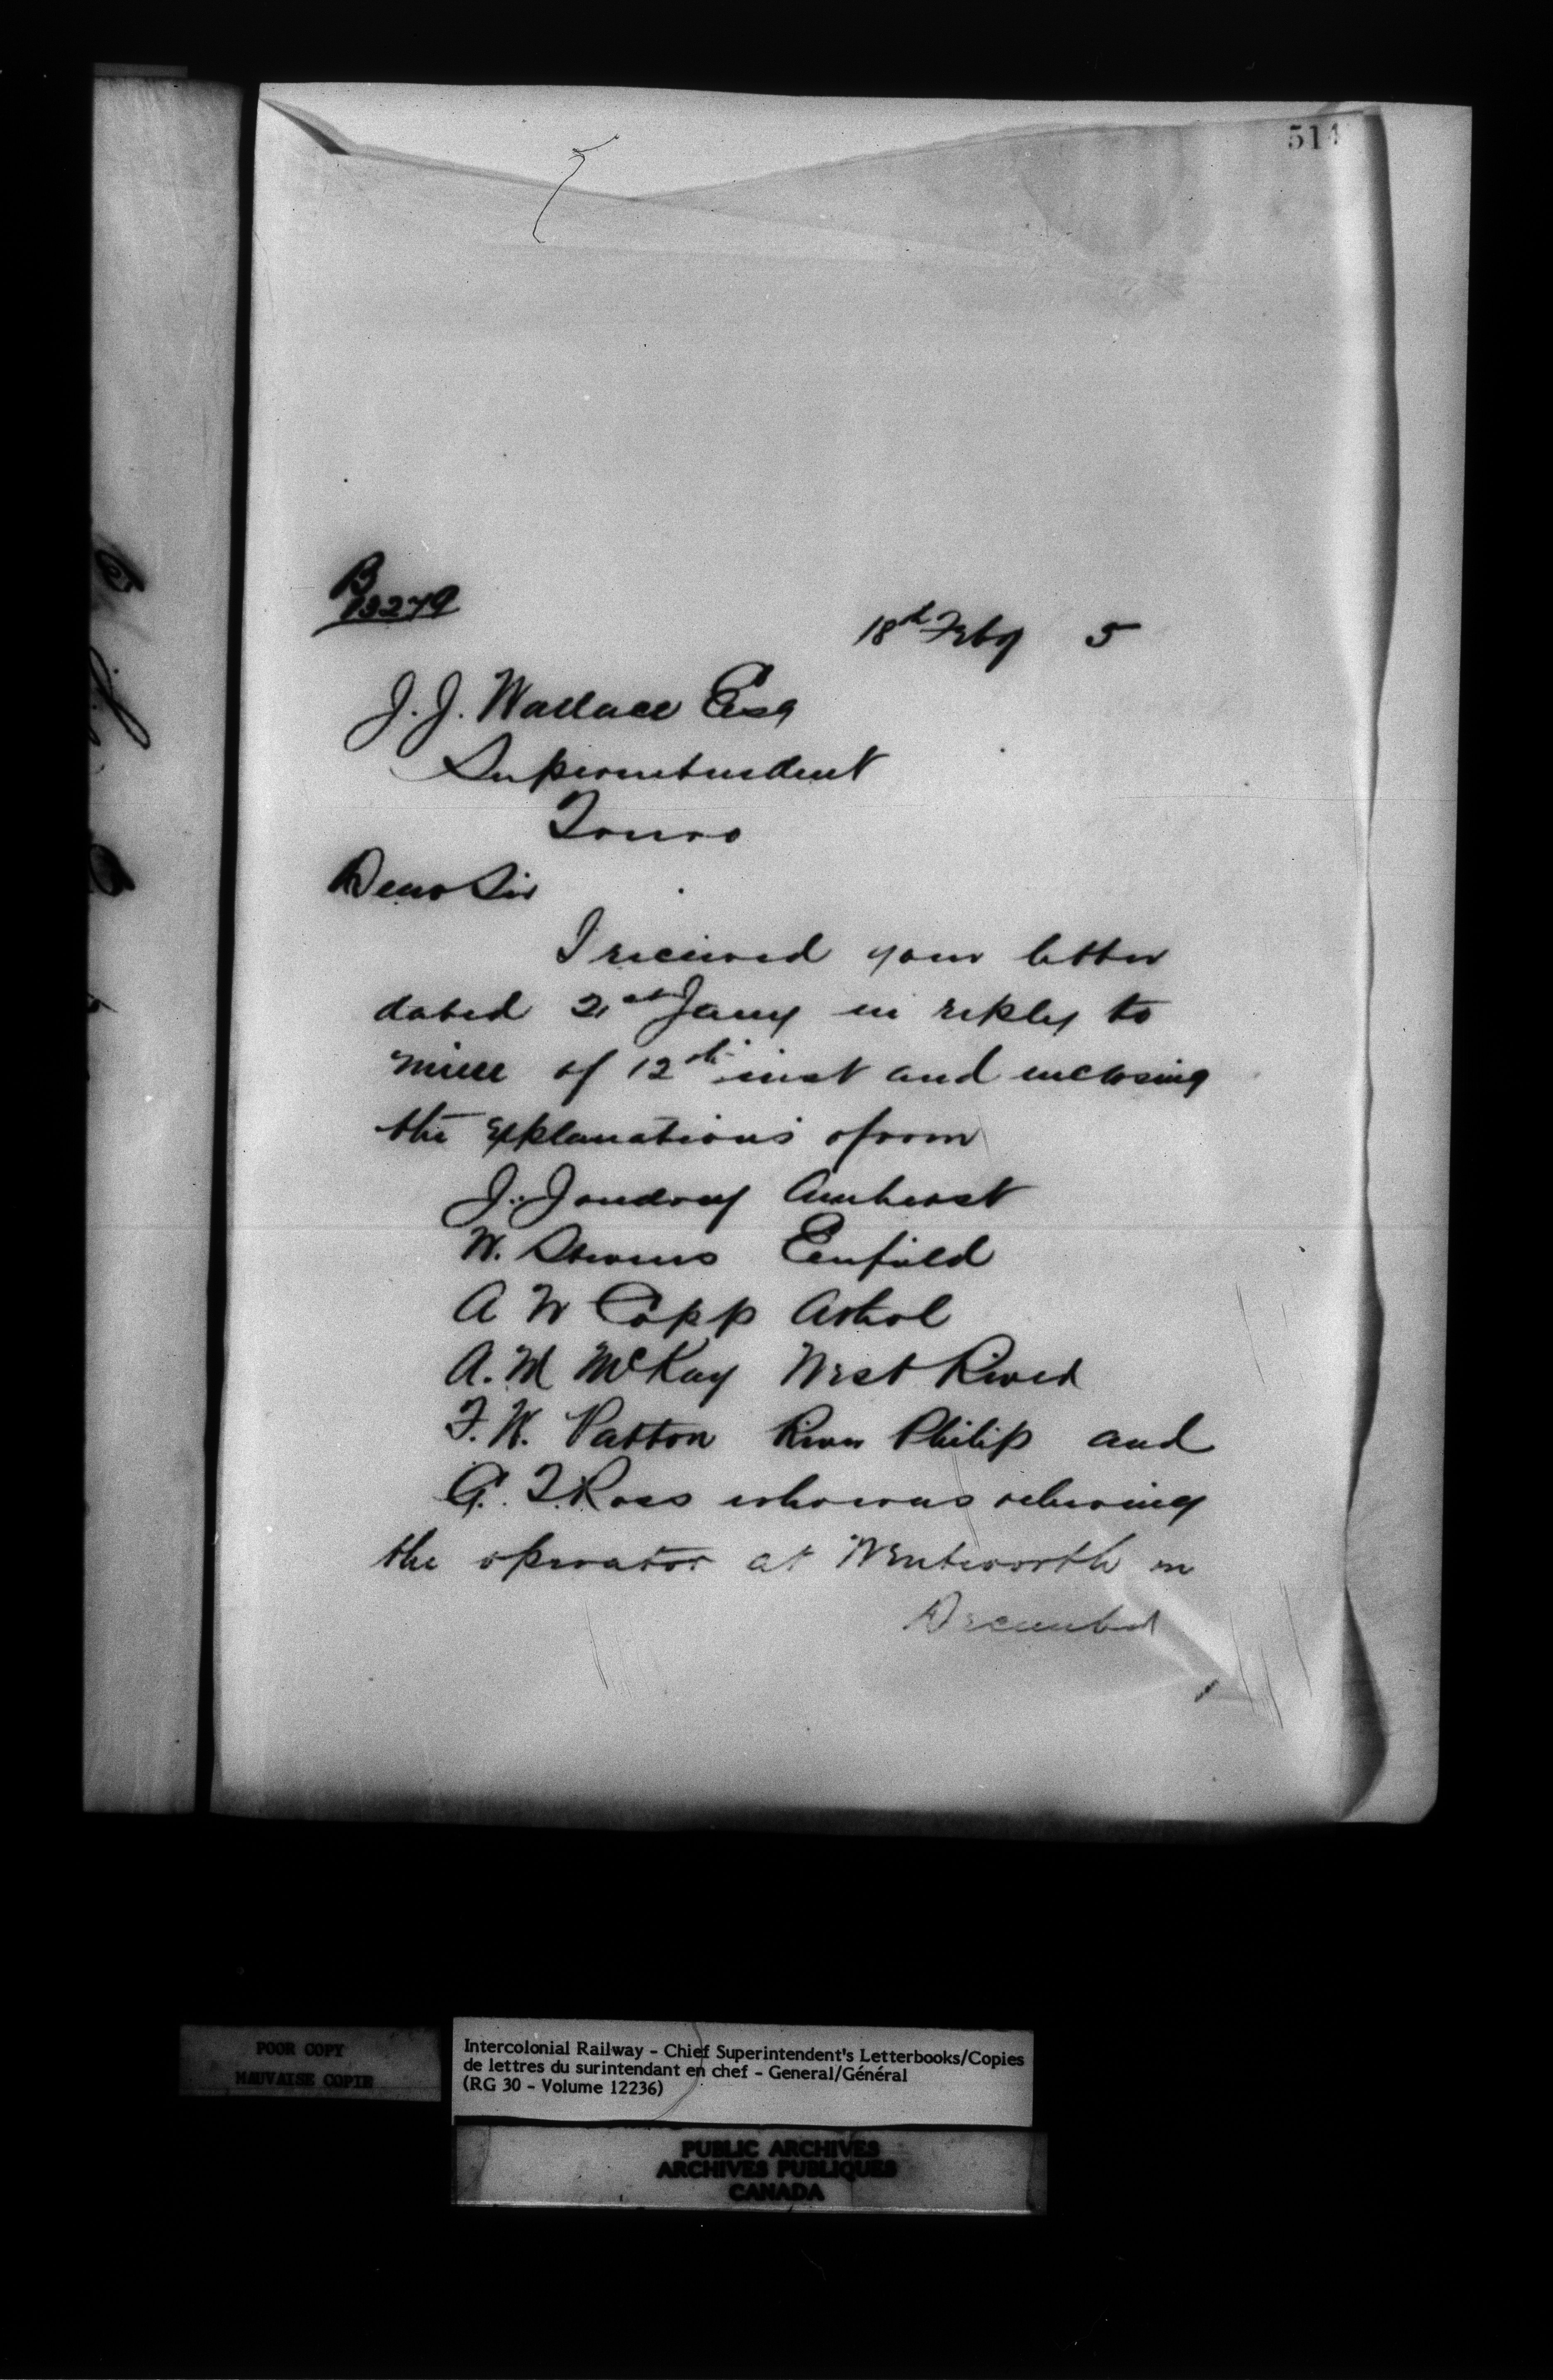 514
B
13279
18th Feby 5
J. J. Wallace Esq
Superintendent
Truro
Dear Sir
I received your letter
dated 21st Jany in reply to
mine of 12th inst and enclosing
the explanations from
J. Joudrey Amherst
W. Stevens Enfield
A W Copp Athol
A. M McKay West River
F. W. Patton River Philip and
G. T. Ross who was relieving
the operator at Wentworth in
December
POOR COPY
MAUVAISE COPIE
Intercolonial Railway - Chief Superintendent's Letterbooks/Copies
de lettres du surintendant en chef - General/Général
(RG 30 - Volume 12236)
PUBLIC ARCHIVES
ARCHIVES PUBLIQUES
CANADA